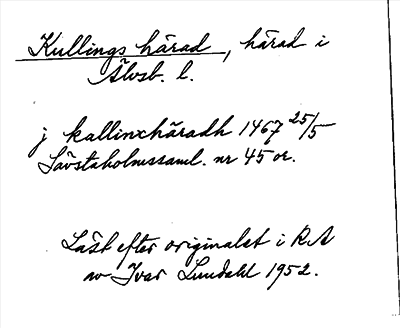 Kullings härad, härad i
Älvsb. l.
j kallinxhäradh 1467 25/5
Sävstaholmssaml. nr 45 or.
Läst efter originalet i RA
av Ivar Lundahl 1952.